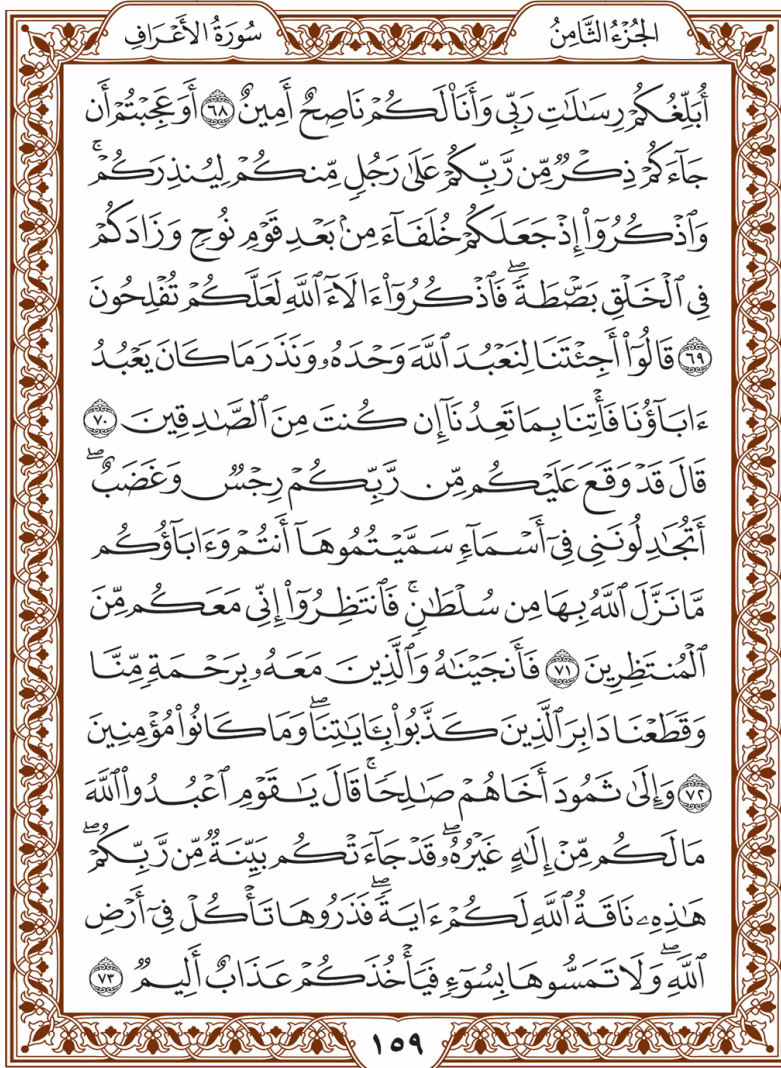 الجُزْءُ الثَّامِنُ
سُورَةُ الأَعْرَافِ
أُبَلِّغُكُمْ رِسَٰلَٰتِ رَبِّي وَأَنَا۠ لَكُمْ نَاصِحٌ أَمِينٌ ٦٨ أَوَعَجِبْتُمْ أَن
جَآءَكُمْ ذِكْرٌ مِّن رَّبِّكُمْ عَلَىٰ رَجُلٍ مِّنكُمْ لِيُنذِرَكُمْ ۚ
وَٱذْكُرُوٓا۟ إِذْ جَعَلَكُمْ خُلَفَآءَ مِنۢ بَعْدِ قَوْمِ نُوحٍ وَزَادَكُمْ
فِي ٱلْخَلْقِ بَصْۜطَةً ۖ فَٱذْكُرُوٓا۟ ءَالَآءَ ٱللَّهِ لَعَلَّكُمْ تُفْلِحُونَ
٦٩ قَالُوٓا۟ أَجِئْتَنَا لِنَعْبُدَ ٱللَّهَ وَحْدَهُۥ وَنَذَرَ مَا كَانَ يَعْبُدُ
ءَابَآؤُنَا فَأْتِنَا بِمَا تَعِدُنَآ إِن كُنتَ مِنَ ٱلصَّٰدِقِينَ ٧٠
قَالَ قَدْ وَقَعَ عَلَيْكُم مِّن رَّبِّكُمْ رِجْسٌ وَغَضَبٌ ۖ
أَتُجَٰدِلُونَنِي فِيٓ أَسْمَآءٍ سَمَّيْتُمُوهَآ أَنتُمْ وَءَابَآؤُكُم
مَّا نَزَّلَ ٱللَّهُ بِهَا مِن سُلْطَٰنٍ ۚ فَٱنتَظِرُوٓا۟ إِنِّي مَعَكُم مِّنَ
ٱلْمُنتَظِرِينَ ٧١ فَأَنجَيْنَٰهُ وَٱلَّذِينَ مَعَهُۥ بِرَحْمَةٍ مِّنَّا
وَقَطَعْنَا دَابِرَ ٱلَّذِينَ كَذَّبُوا۟ بِـَٔايَٰتِنَا ۖ وَمَا كَانُوا۟ مُؤْمِنِينَ
٧٢ وَإِلَىٰ ثَمُودَ أَخَاهُمْ صَٰلِحًا ۚ قَالَ يَٰقَوْمِ ٱعْبُدُوا۟ ٱللَّهَ
مَا لَكُم مِّنْ إِلَٰهٍ غَيْرُهُۥ ۖ قَدْ جَآءَتْكُم بَيِّنَةٌ مِّن رَّبِّكُمْ ۖ
هَٰذِهِۦ نَاقَةُ ٱللَّهِ لَكُمْ ءَايَةً ۖ فَذَرُوهَا تَأْكُلْ فِيٓ أَرْضِ
ٱللَّهِ ۖ وَلَا تَمَسُّوهَا بِسُوٓءٍ فَيَأْخُذَكُمْ عَذَابٌ أَلِيمٌ ٧٣
١٥٩